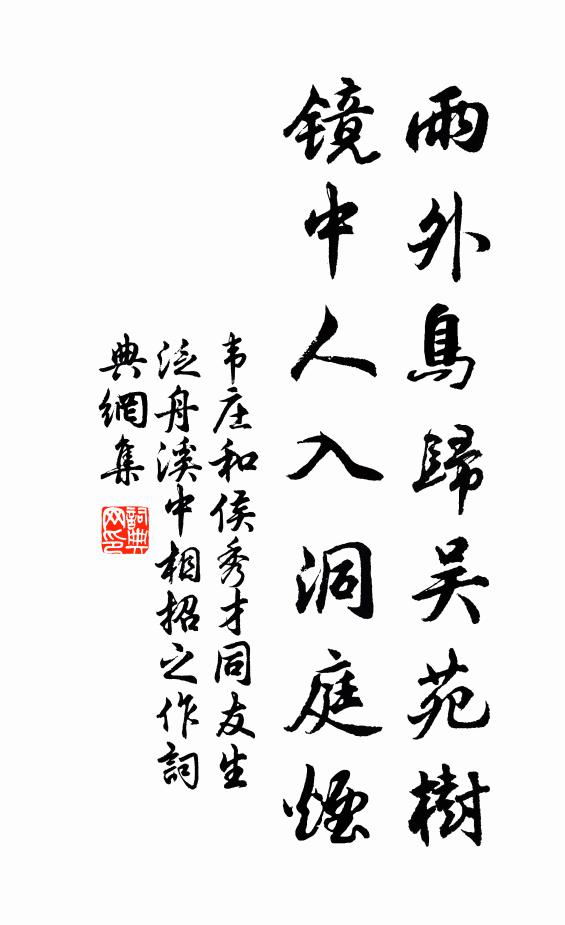 雨外鳥歸吴苑樹
鏡中人入洞庭煙
韦庄和侯秀才同友生
泛舟溪中相招之作詞
典網集
詞典网印